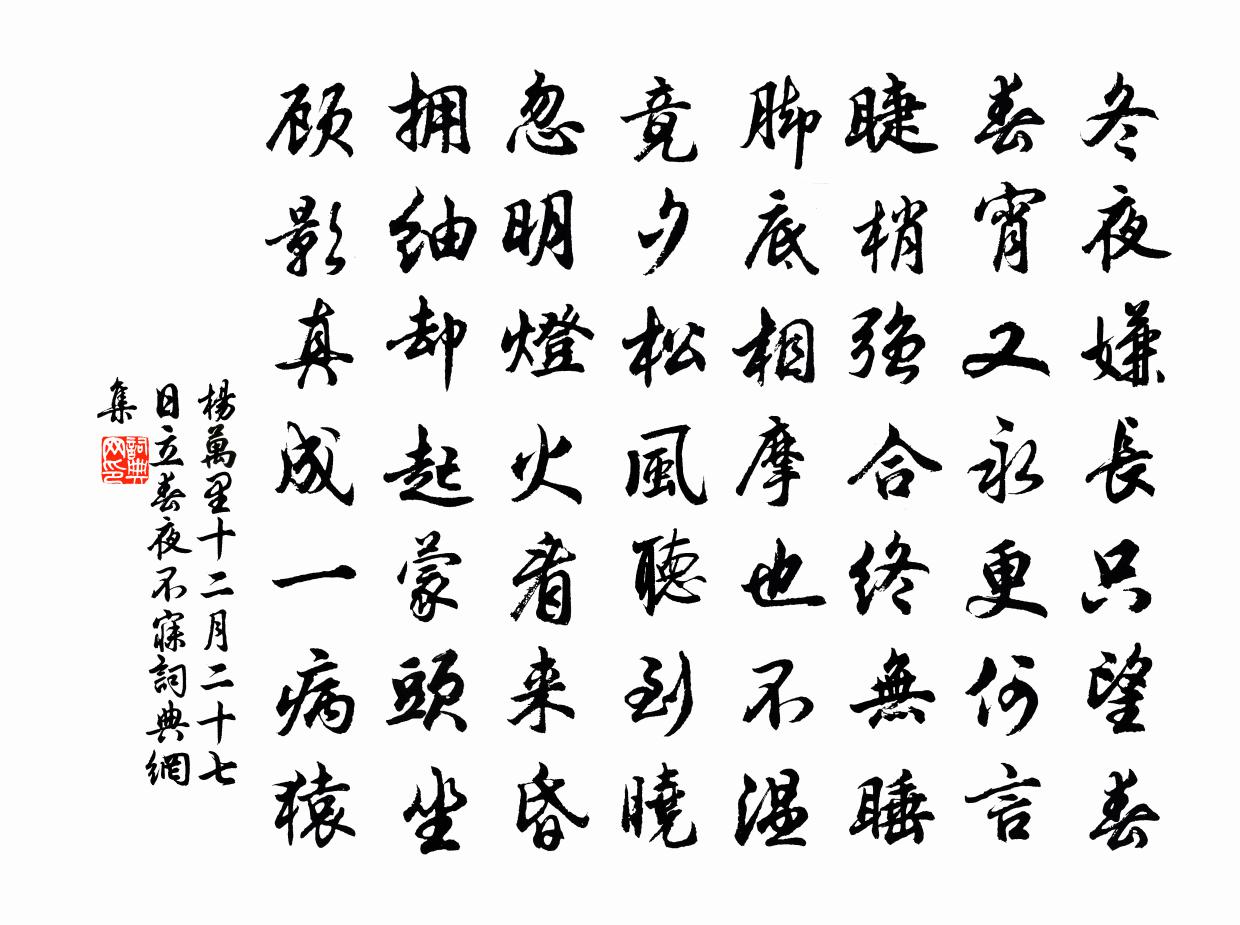 冬夜嫌長只望春
春宵又永更何言
睫梢強合終無睡
脚底相摩也不温
竟夕松風聽到曉
忽明燈火看来昏
拥紬却起蒙頭坐
顾影真成一病猿
楊萬里十二月二十七
日立春夜不寐詞典網
集
詞典网印